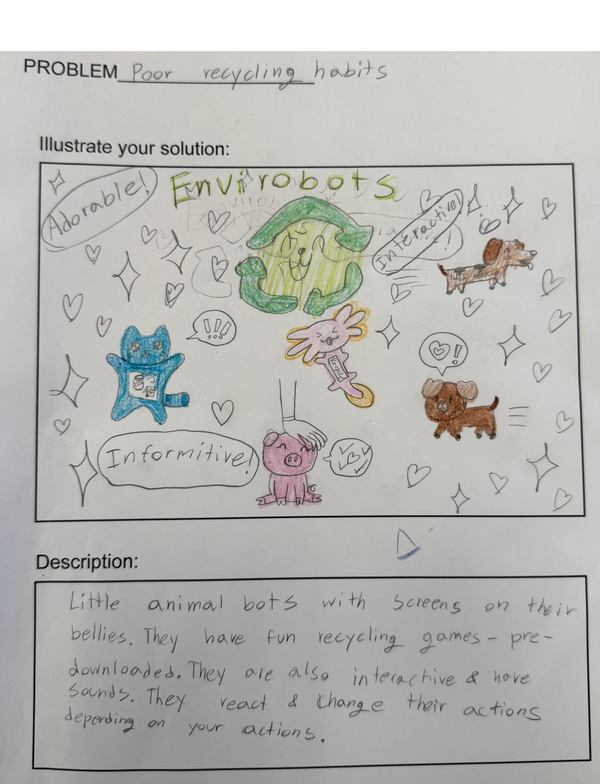 PROBLEM Poor recycling habits
Illustrate your solution:
Envirobots
Adorable!
Interactive!
!!!
!
Informitive!
Description:
Little animal bots with screens on their
bellies. They have fun recycling games - pre-
downloaded. They are also interactive & have
sounds. They react & change their actions
depending on your actions.